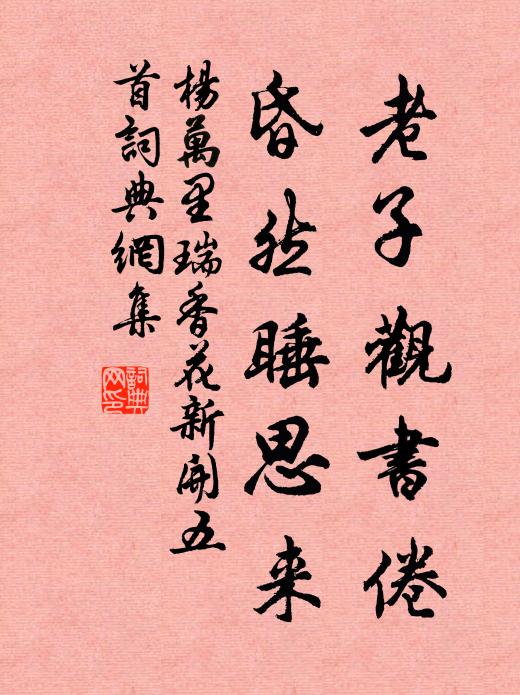 老子觀書倦
昏然睡思来
楊萬里瑞香花新開五
首詞典網集
詞典網印